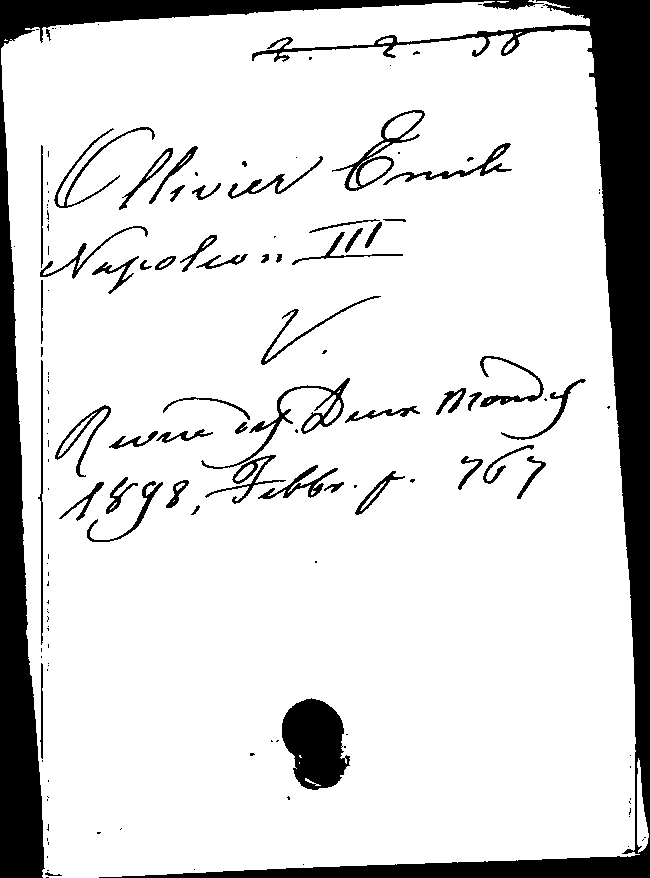 2. 2. 38
Ollivier Emile
Napoleon III
V.
Revue des Deux Mondes
1898, Febbr. p. 767